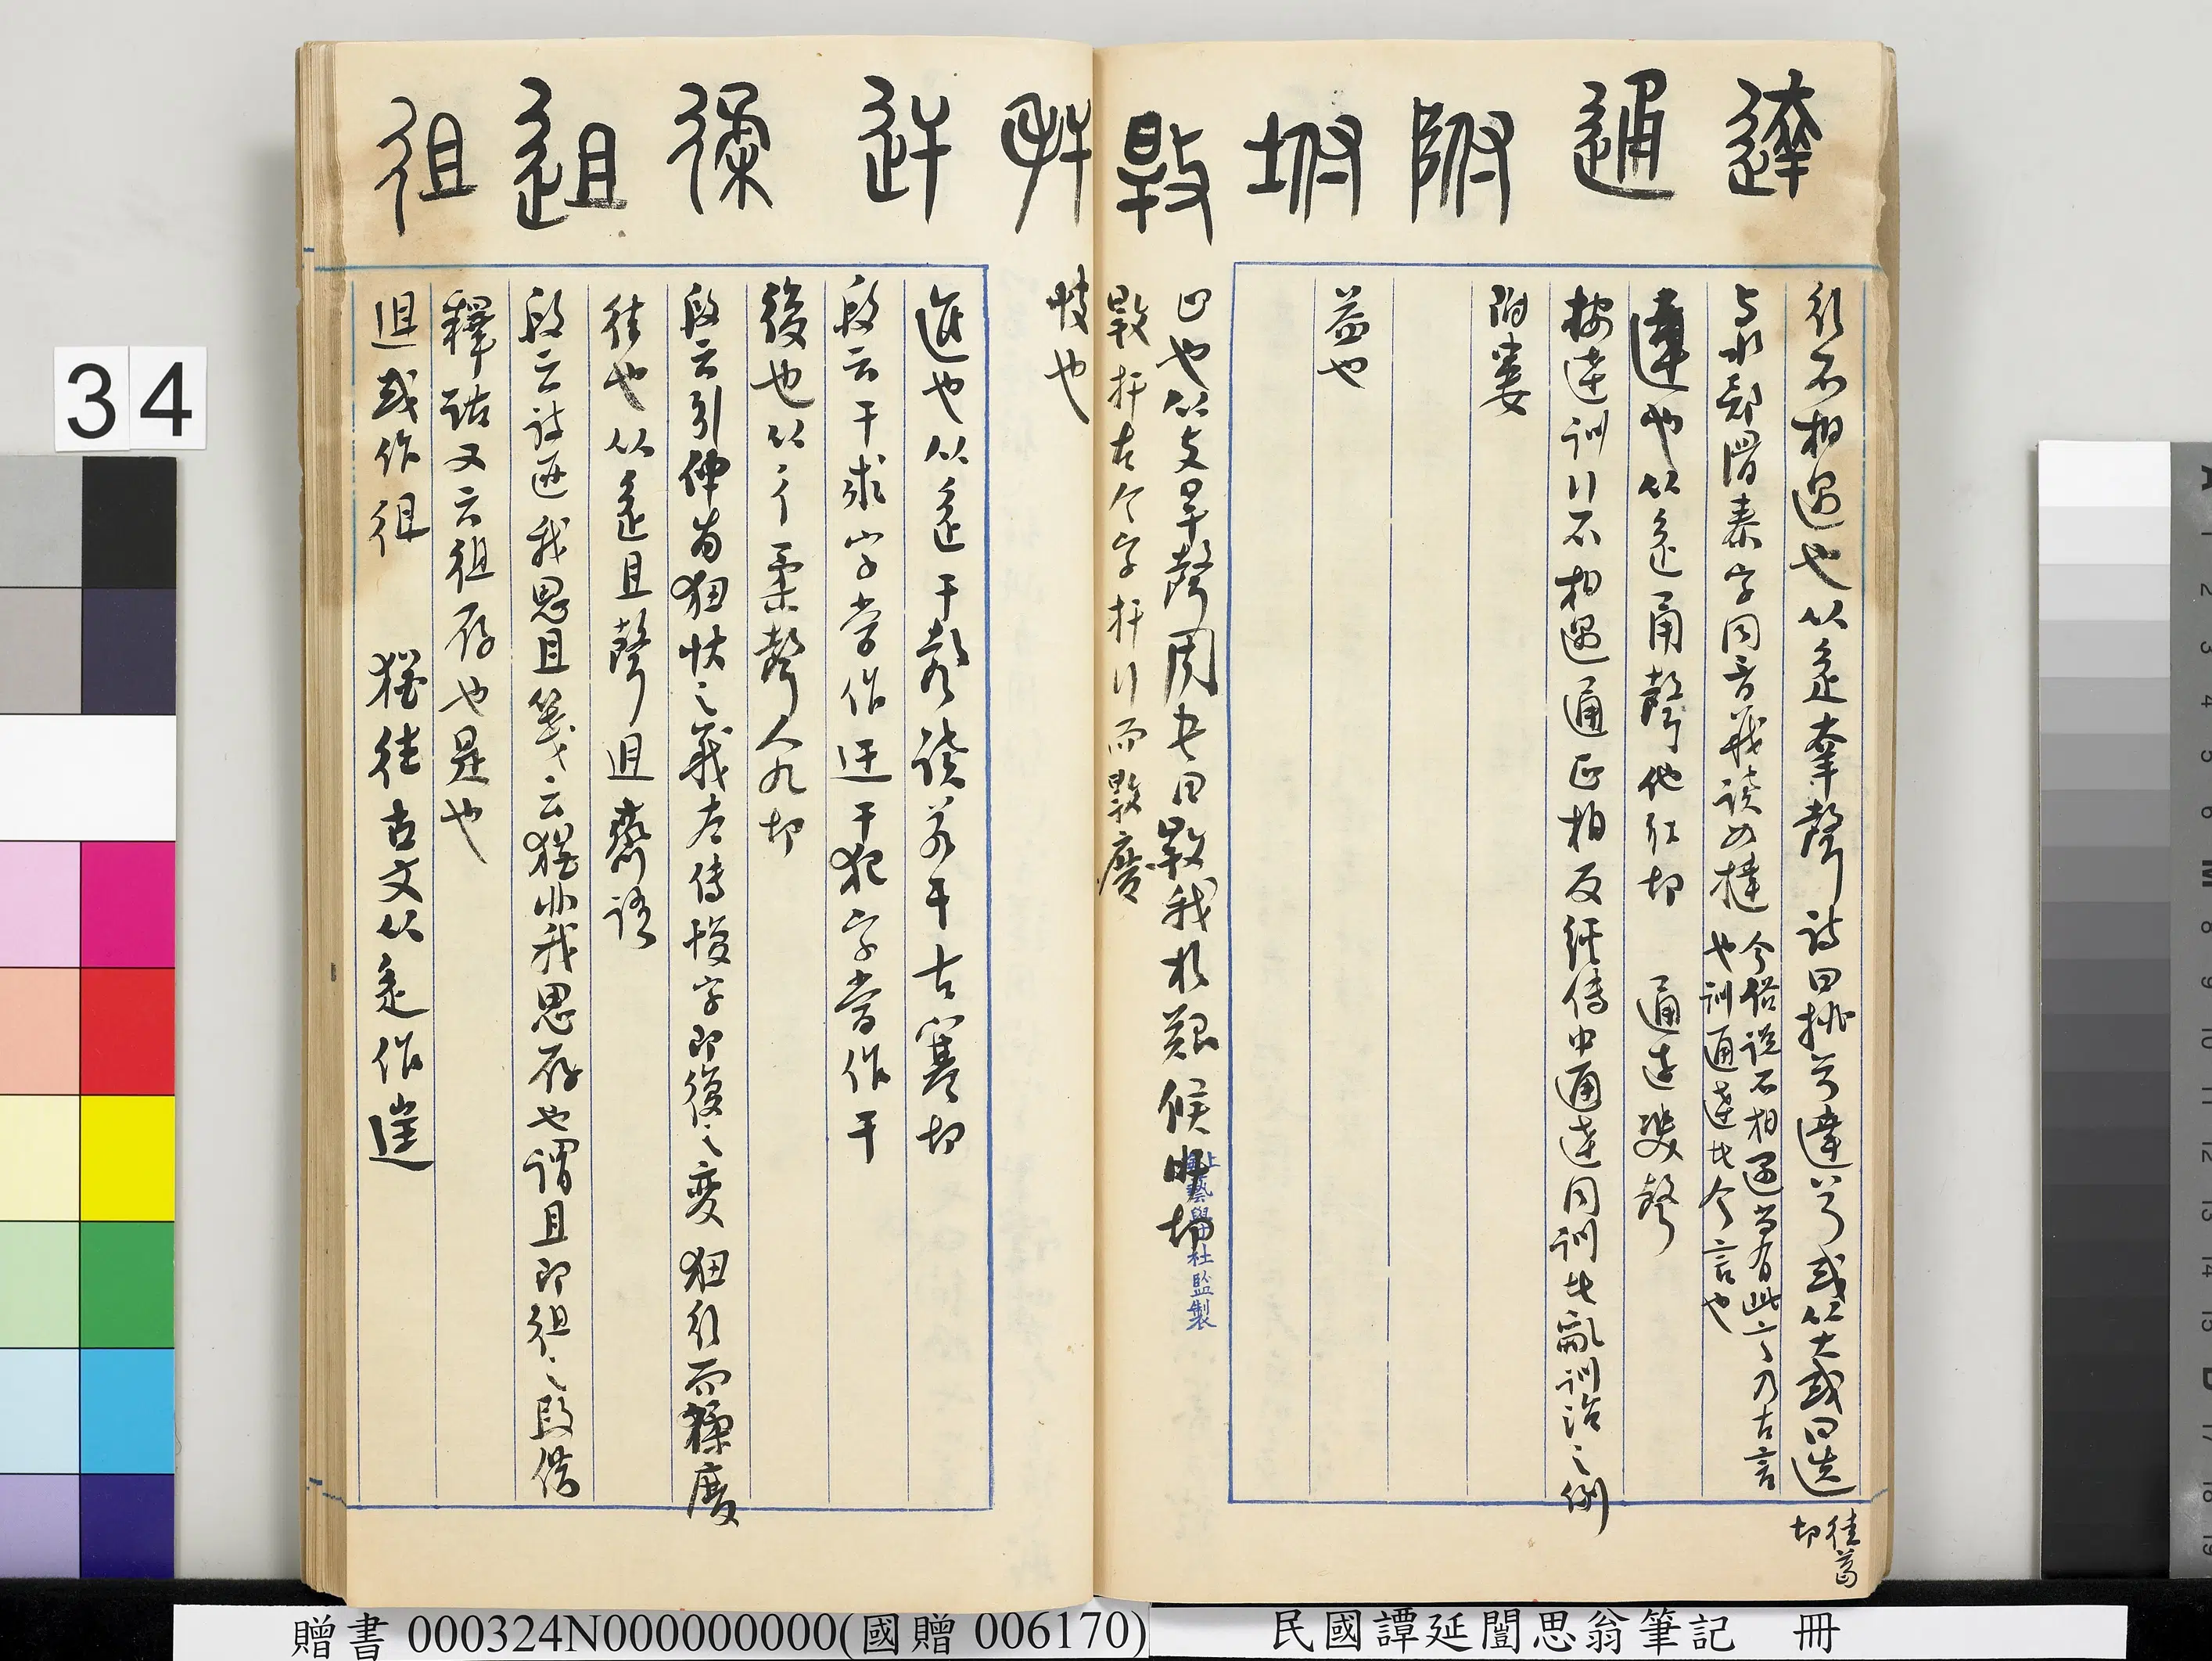 達 通 附 坿 𢾭 𢆉 迀 𢓜 䢐 徂
行不相遇也从辵羍聲詩曰挑兮達兮或从大或曰迭
徒葛切
与水部㳠泰字同音義读如撻
今俗說不相遇尚有此言乃古言
也訓通達者今言也
達也从辵甬聲他红切 通达雙聲
按達訓行不相遇通正相反经传中通達同訓者亂訓治之例
附婁
益也
止也从攴旱聲周書曰𢾭我于艱侯旰切
𢾭扞古今字扞行而𢾭廢
上海藝學社監製
也
進也从辵干聲读若干古寒切
段云干求字当作迀干犯字当作干
後也从彳柔聲人九切
段云引伸为狃忕之義左传復字即復之变狃行而廢
往也从辵且聲䢐齋語
段云詩匪我思且箋云猶非我思存也谓且即徂之叚借
釋詁又云徂存也是也
䢐或作徂 猶往古文从辵作𨓹
34
贈書 000324N000000000(國贈 006170)
民國譚延闓思翁筆記 冊